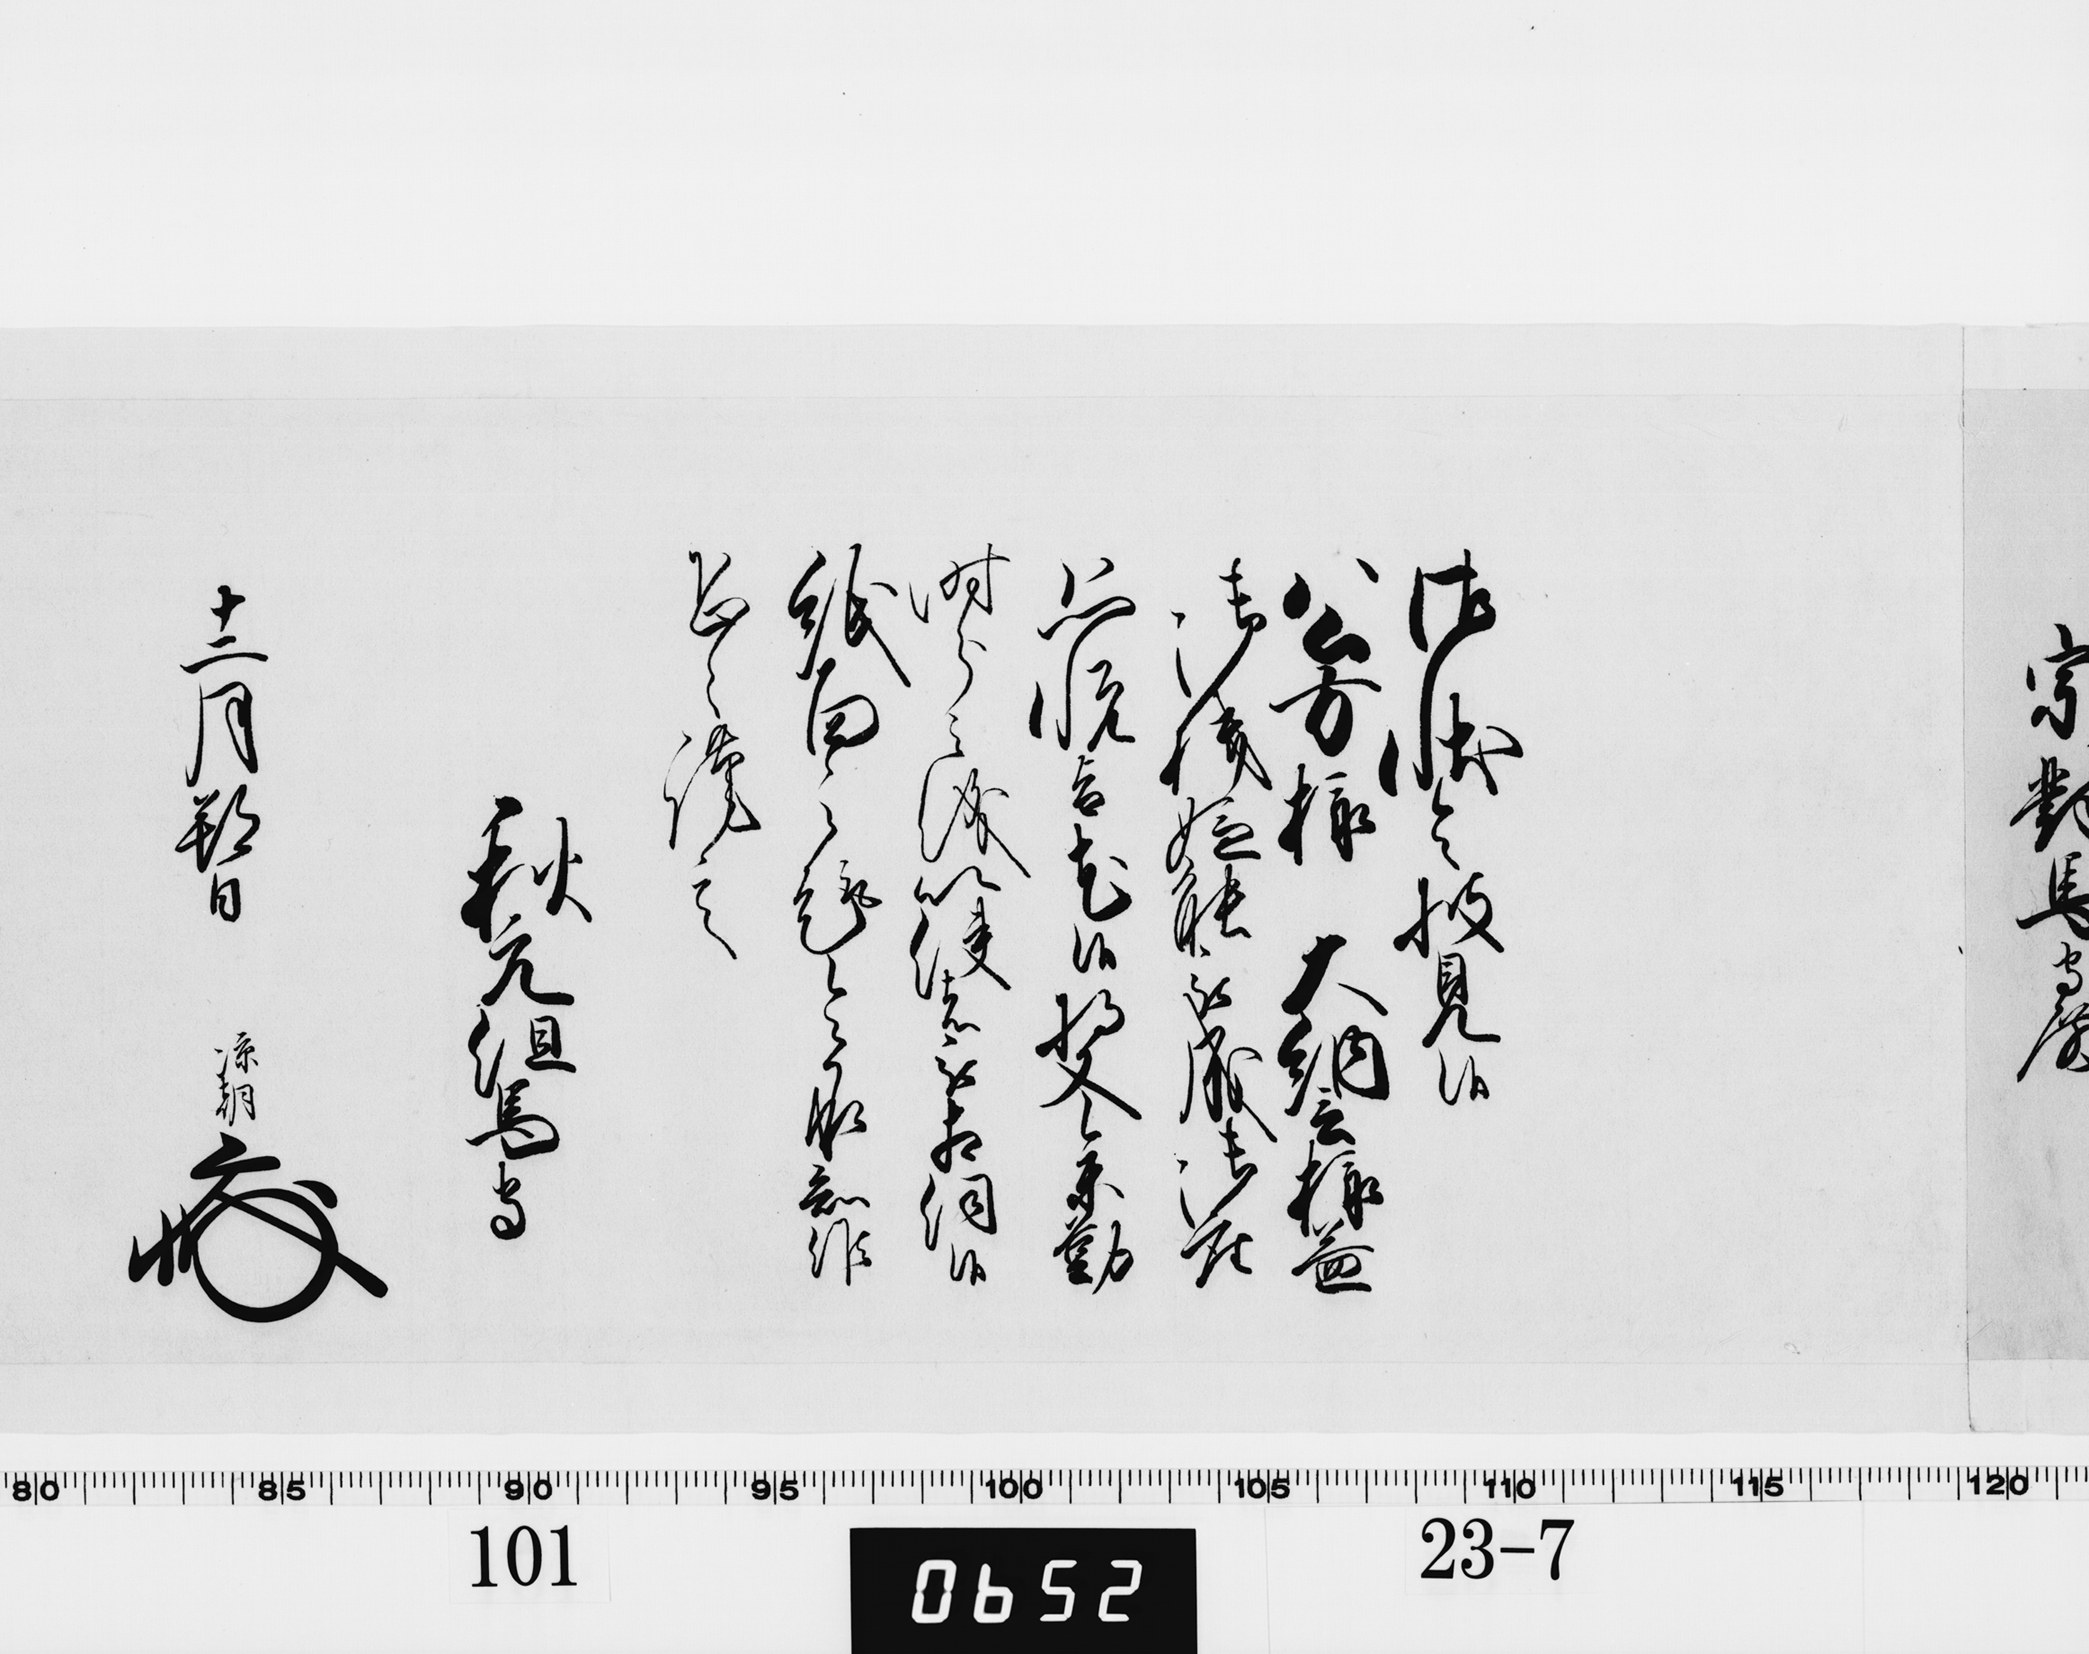 宗對馬守殿
御状令披見候
公方様 大納言様益
御機嫌能被成御座
恐悦旨尤候将又参勤
時分之儀以使者被相伺候
紙面之趣令承知候
恐々謹言
秋元但馬守
十二月朔日 凉朝
80 85 90 95 100 105 110 115 120
101 0652 23-7